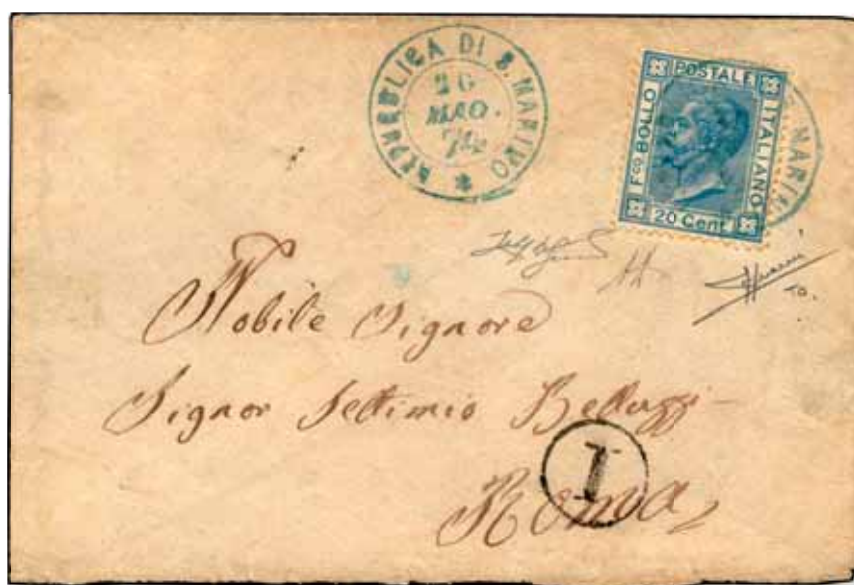 REPUBBLICA DI S. MARINO
26
MAG.
72
POSTALE
Fco BOLLO
ITALIANO
20 Cent
S. MARIN
Nobile Signore
Signor Settimio Belluzzi
Roma
I